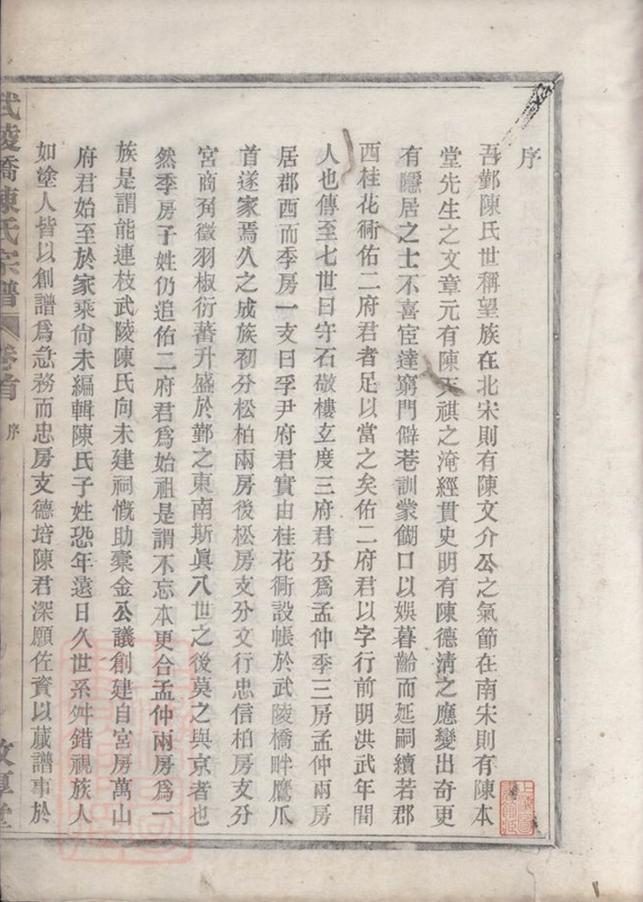 序
吾鄞陳氏世稱望族在北宋則有陳文介公之氣節在南宋則有陳本
堂先生之文章元有陳天祺之淹經貫史明有陳德清之應變出奇更
有隱居之士不喜宦達窮門僻巷訓蒙餬口以娛暮齡而延嗣續若郡
西桂花衕佑二府君者足以當之矣佑二府君以字行前明洪武年間
人也傳至七世曰守石敬樓玄度三府君分為孟仲季三房孟仲兩房
居郡西而季房一支曰孚尹府君實由桂花衕設帳於武陵橋畔鷹爪
首遂家焉久之成族初分松柏兩房後松房支分文行忠信柏房支分
宮商角徵羽椒衍蕃升盛於鄞之東南斯眞八世之後莫之與京者也
然季房子姓仍追佑二府君爲始祖是謂不忘本更合孟仲兩房爲一
族是謂能連枝武陵陳氏向未建祠慨助橐金公議創建自宮房萬山
府君始至於家乘尙未編輯陳氏子姓恐年遠日久世系舛錯視族人
如塗人皆以創譜爲急務而忠房支德培陳君深願佐資以蕆譜事於
武陵橋陳氏宗譜 卷首 序